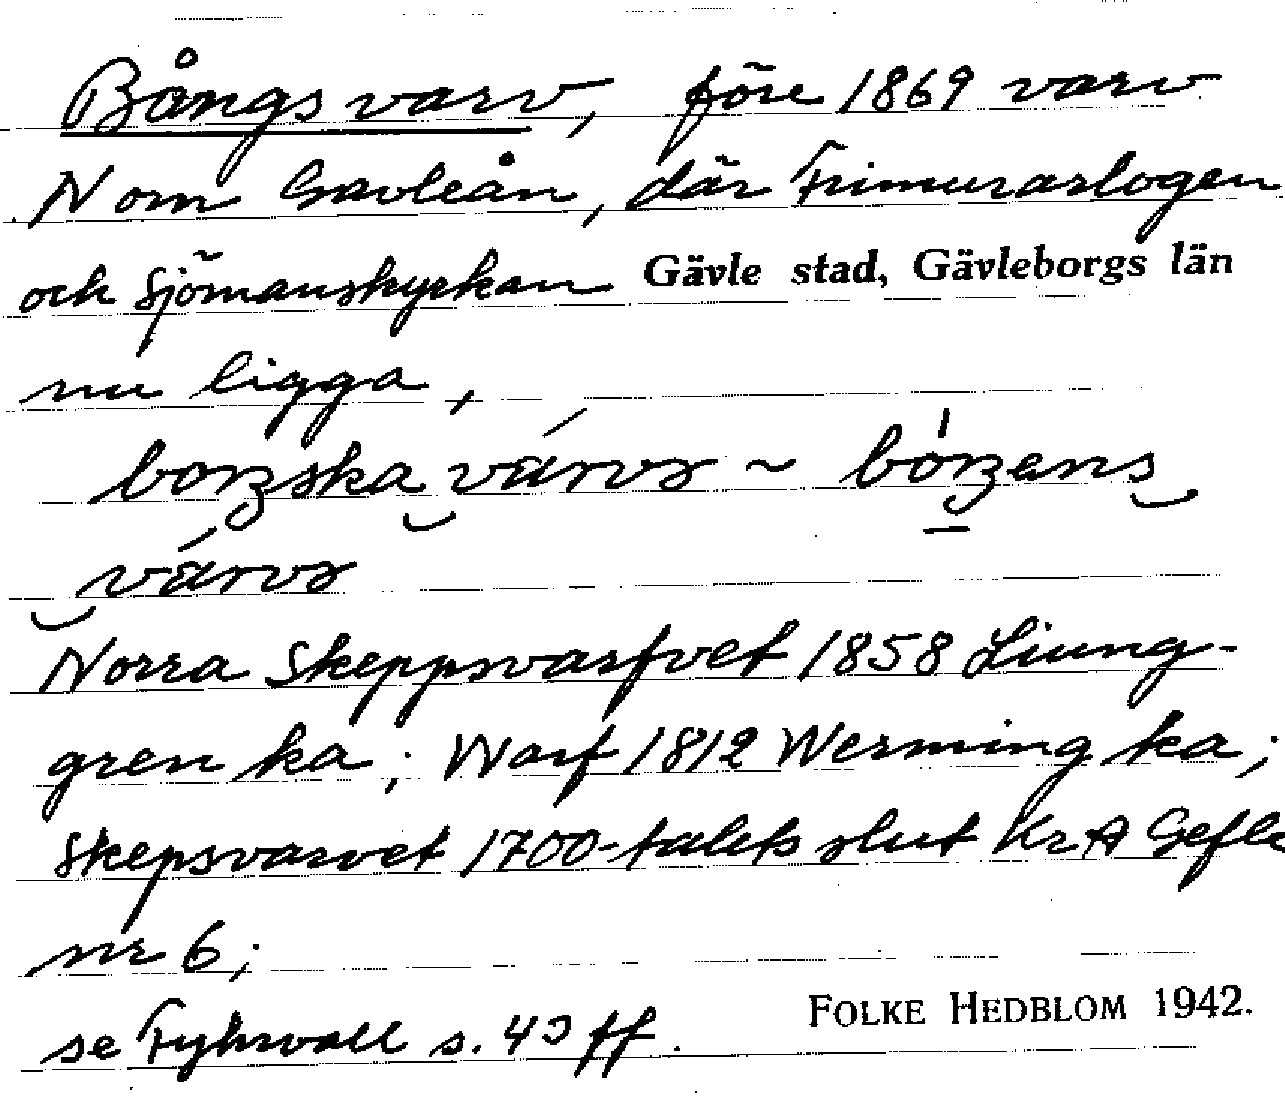 Bångs varv, före 1869 varv
N om Gavleån, där Frimurarlogen
och Sjömanskyrkan Gävle stad, Gävleborgs län
nu ligga,
~
Norra Skeppsvarfvet 1858 Liung-
gren ka; Warf 1812 Werming ka;
Skepsvarvet 1700-talets slut KrA Gefle
nr 6;
se Fyhrvall s. 43 ff.
FOLKE HEDBLOM 1942.